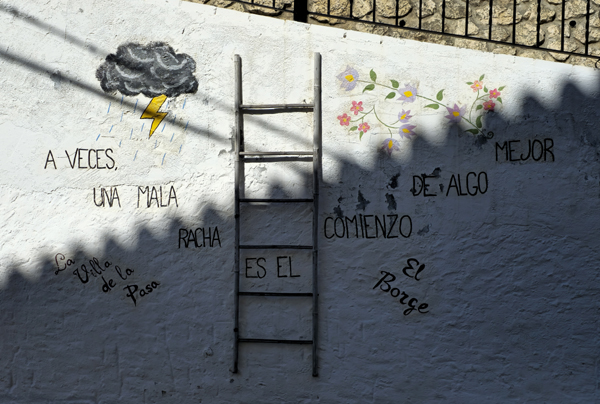 A VECES,
UNA MALA
RACHA
ES EL
COMIENZO
DE ALGO
MEJOR
La Villa
de la
Pasa
El
Borge